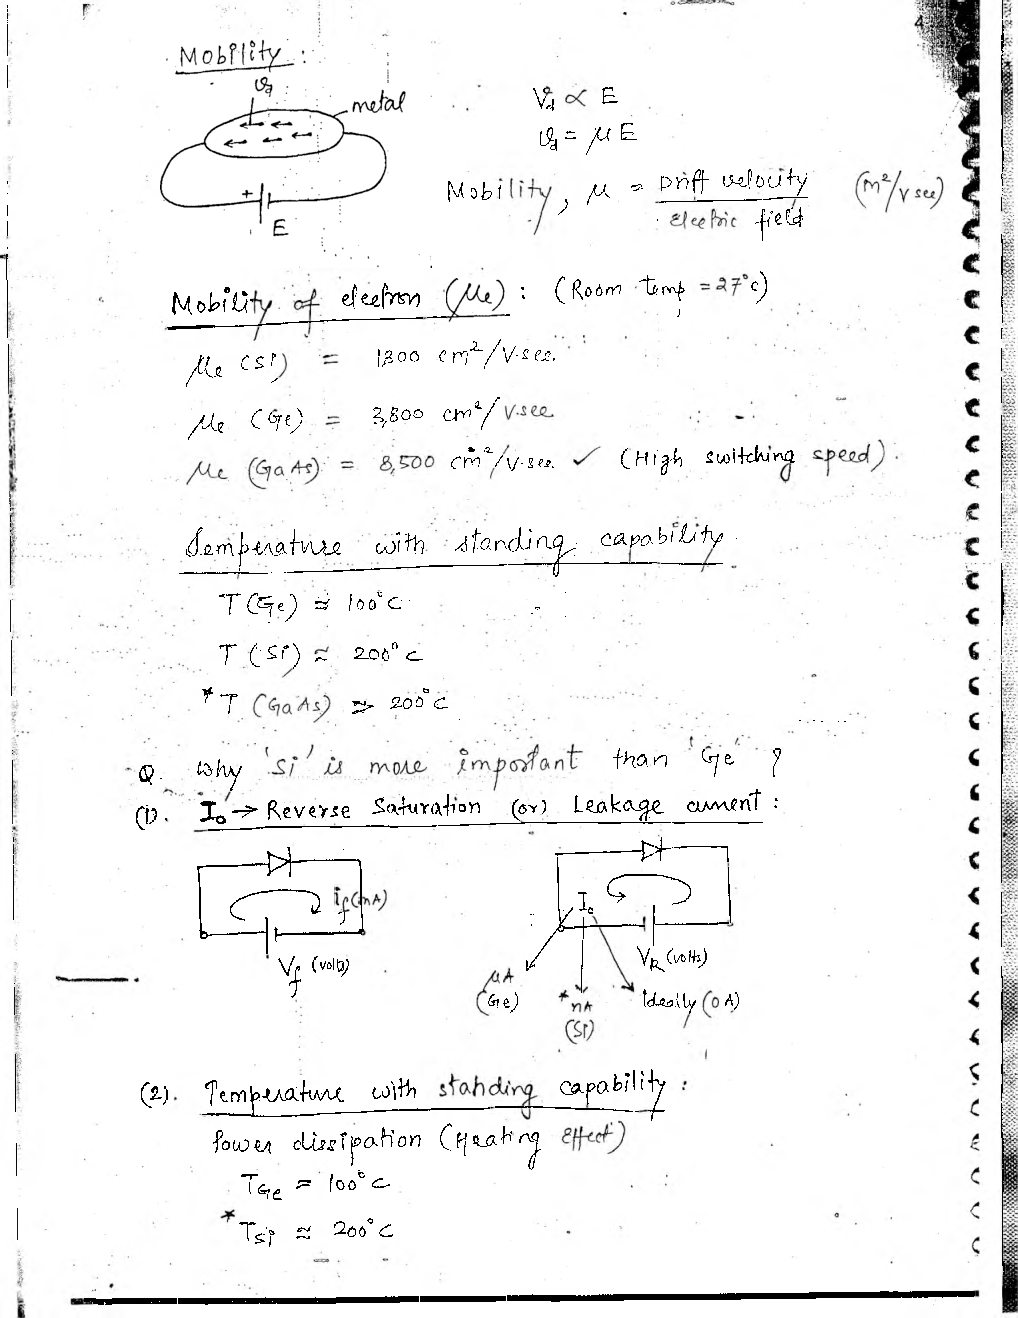 4
Mobility :
vd
metal
+
E
Vd ∝ E
vd = μ E
Mobility, μ = Drift velocity / Electric field (m²/v sec)
Mobility of electron (μe) : (Room temp = 27°c)
μe (Si) = 1300 cm²/v-sec.
μe (Ge) = 3,800 cm²/v.sec
μe (GaAs) = 8,500 cm²/v.sec. ✓ (High switching speed).
Temperature with standing capability
T (Ge) ≈ 100°c
T (Si) ≈ 200°c
* T (GaAs) > 200°c
Q. Why 'Si' is more important than 'Ge' ?
(1). Io → Reverse Saturation (or) Leakage current :
if(mA)
Vf (volts)
Io
VR (volts)
μA (Ge)
* nA (Si)
Ideally (0 A)
(2). Temperature with standing capability :
Power dissipation (Heating Effect)
TGe = 100°c
* TSi ≈ 200°c